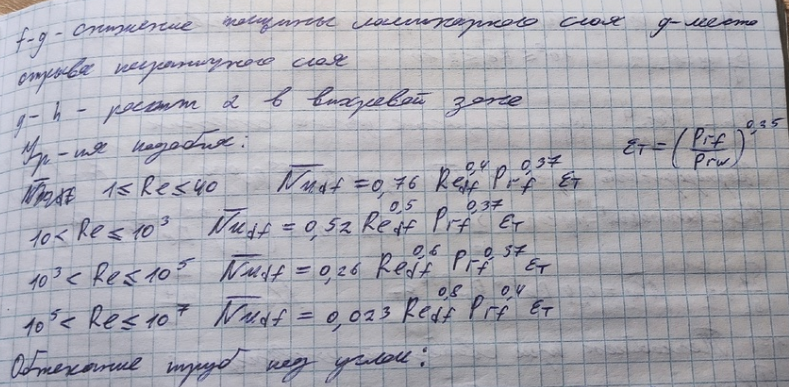 f-g - снижение толщины ламинарного слоя g-место
отрыва пограничного слоя
g-h - растет α в вихревой зоне
Ур-ия подобия: εт = (Prf/Prw)^0,25
1 ≤ Re ≤ 40 N̅udf = 0,76 Redf^0,4 Prf^0,37 εт
10 < Re ≤ 10^3 N̅udf = 0,52 Redf^0,5 Prf^0,37 εт
10^3 < Re ≤ 10^5 N̅udf = 0,26 Redf^0,6 Prf^0,37 εт
10^5 < Re ≤ 10^7 N̅udf = 0,023 Redf^0,8 Prf^0,4 εт
Обтекание труб под углом: